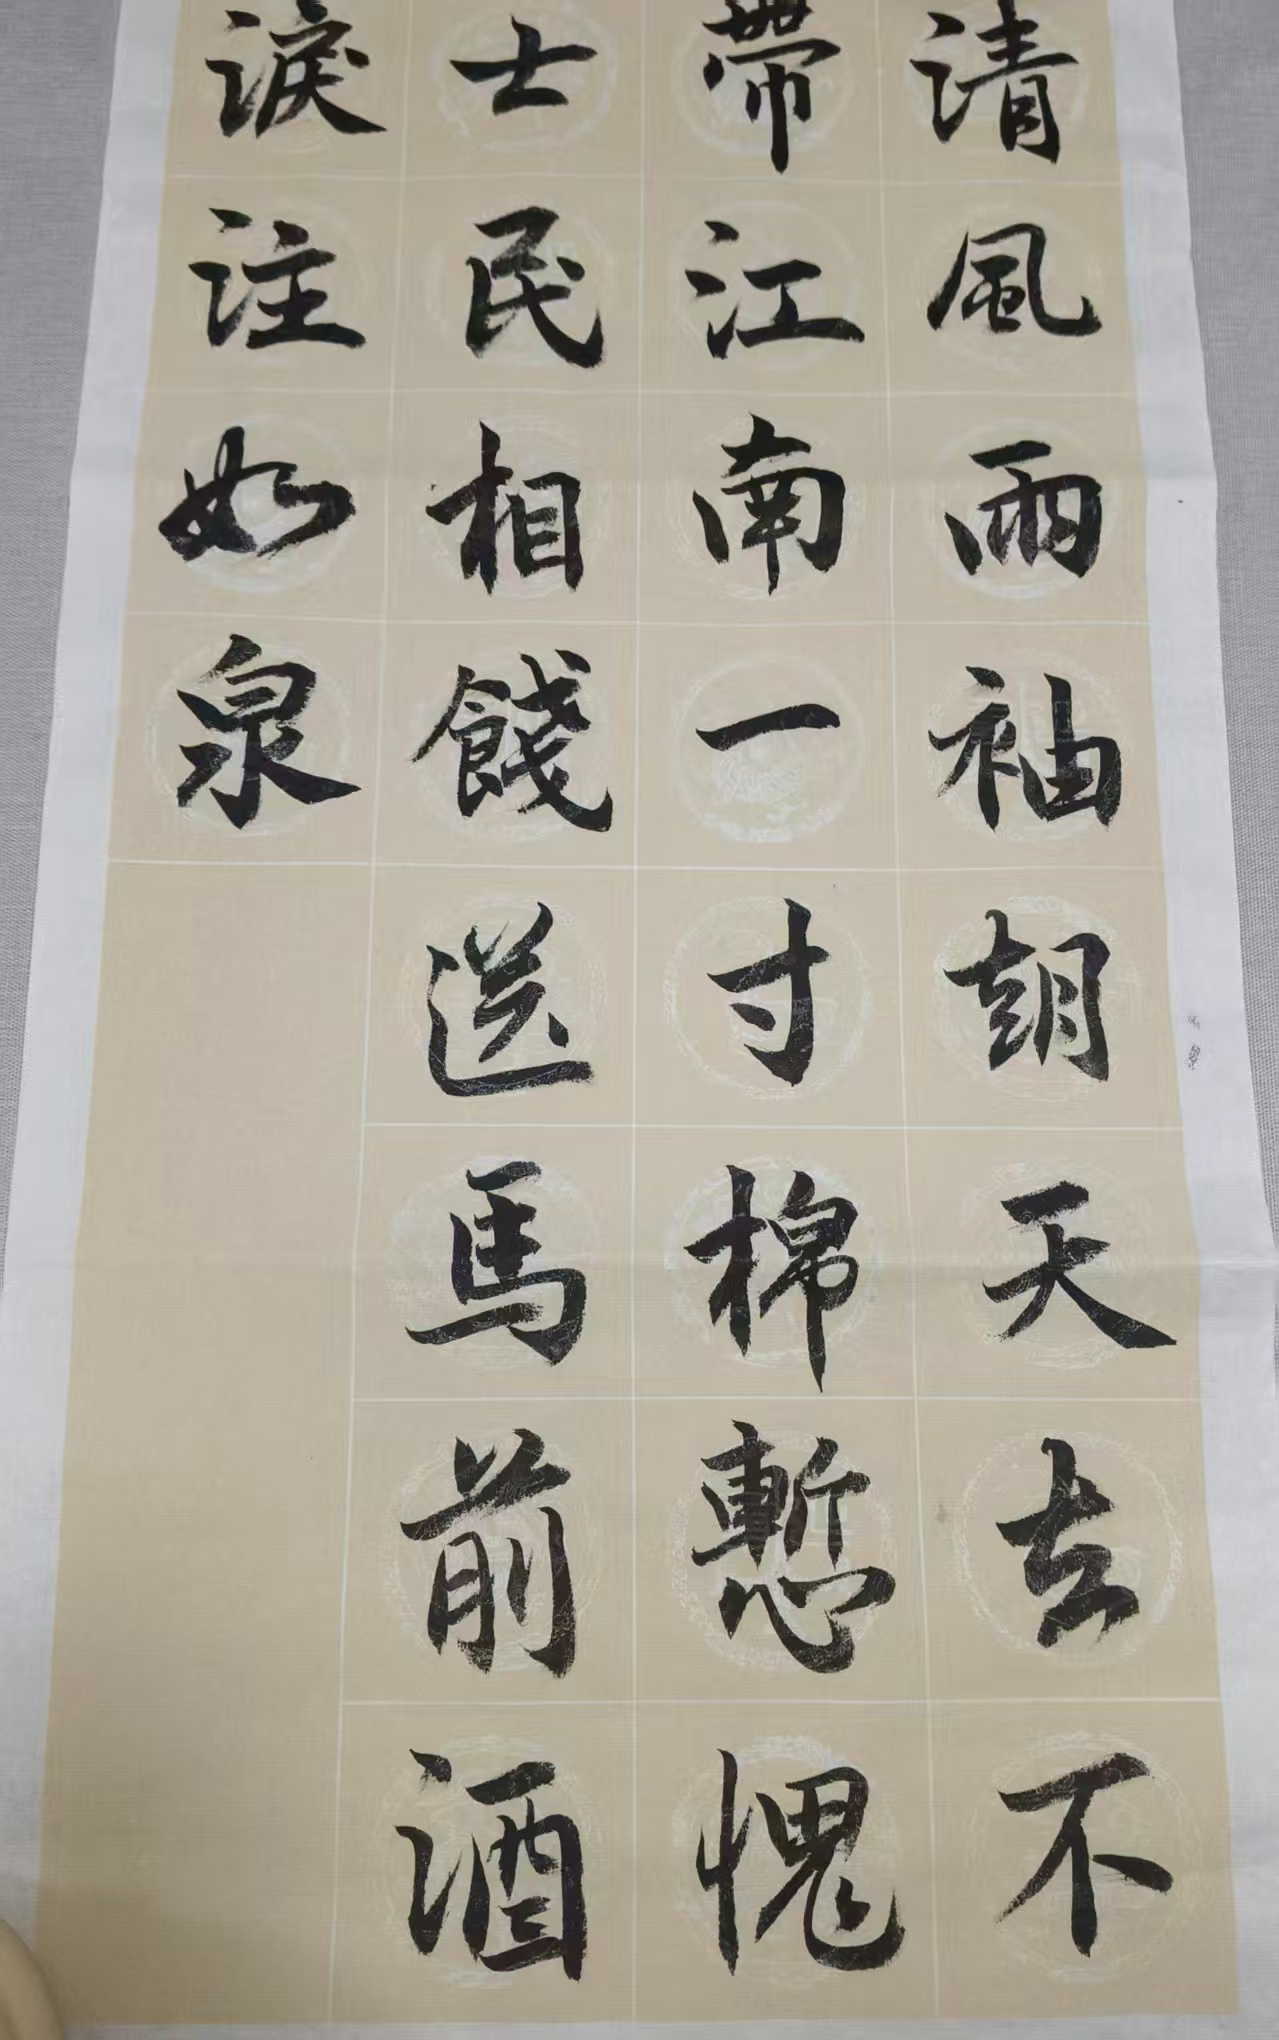 清風兩袖朝天去不
帶江南一寸棉慙愧
士民相餞送馬前酒
淚注如泉